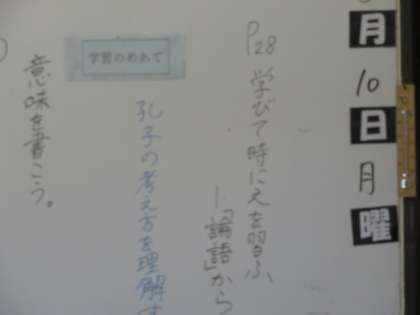 月
10
日
月
曜
P28 学びて時にえを習ふ
―「論語」から
学習のめあて
孔子の考え方を理解す
意味を書こう。